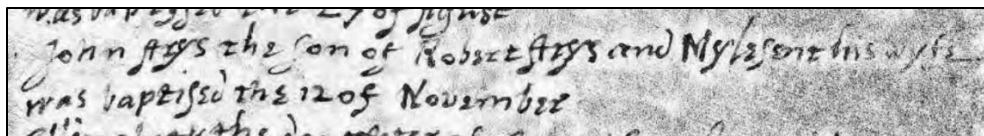 was baptised the 27 of August
John Arys the son of Robert Arys and Mylesent his wyfe
was baptised the 12 of November
the daughter of